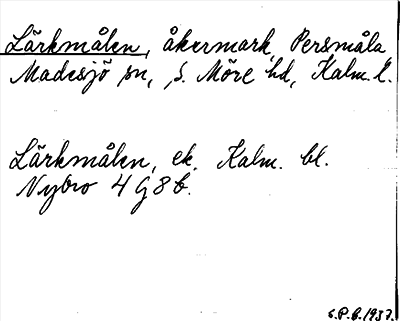 Lärkmålen, åkermark, Persmåla
Madesjö sn, S. Möre hd, Kalm. l.
Lärkmålen, ek. Kalm. bl.
Nybro 4 G 8 b.
S.P.B. 1937.